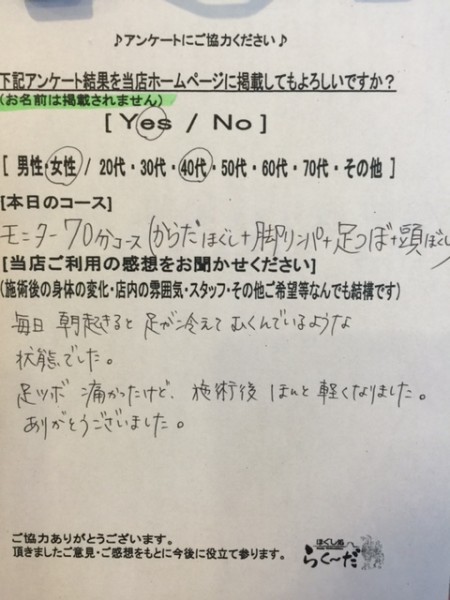 ♪アンケートにご協力ください♪
下記アンケート結果を当店ホームページに掲載してもよろしいですか？
(お名前は掲載されません)
[ Yes / No ]
[ 男性・女性 / 20代・30代・40代・50代・60代・70代・その他 ]
[本日のコース]
モニター70分コース(からだほぐし+脚リンパ+足つぼ+頭ほぐし
[当店ご利用の感想をお聞かせください]
(施術後の身体の変化・店内の雰囲気・スタッフ・その他ご希望等なんでも結構です)
毎日 朝起きると足が冷えてむくんでいるような
状態でした。
足ツボ 痛かったけど、施術後 ほんと軽くなりました。
ありがとうございました。
ご協力ありがとうございます。
頂きましたご意見・ご感想をもとに今後に役立て参ります。
ほぐし処
らく〜だ